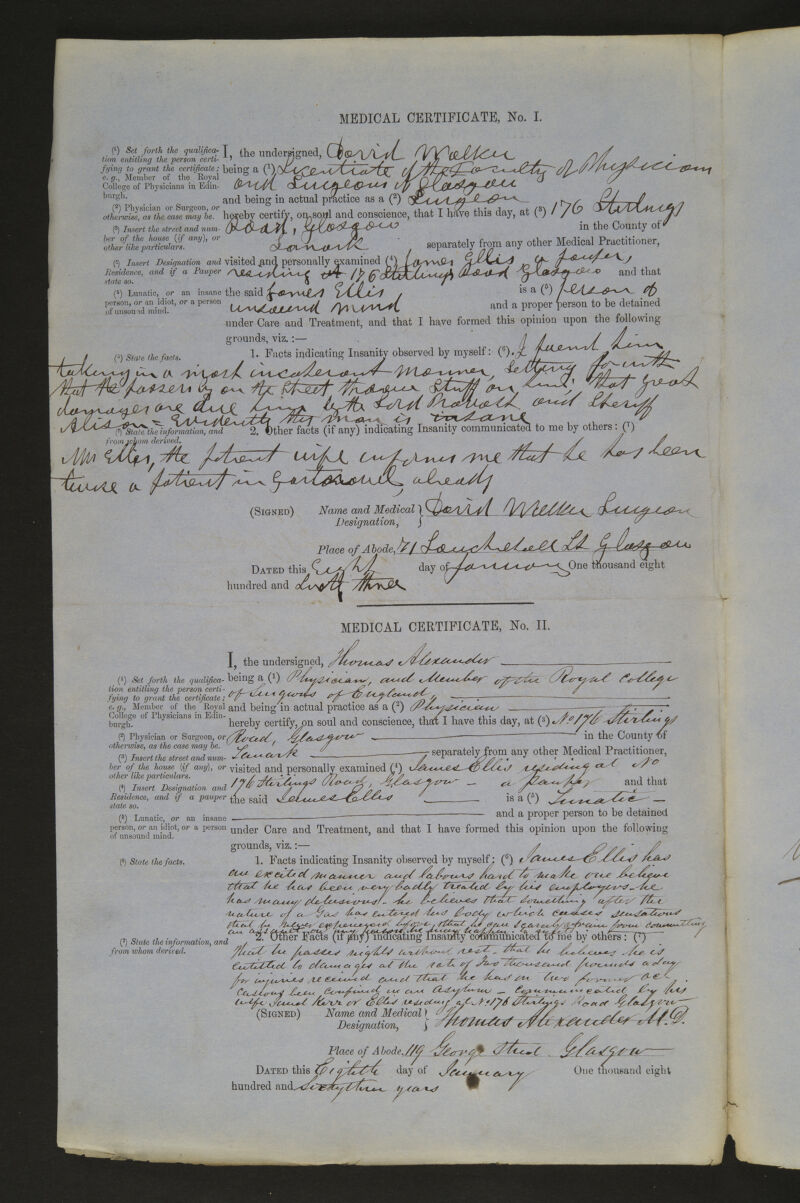 MEDICAL CERTIFICATE, No. I.
(1) Set forth the qualifica-
tion entitling the person certi-
fying to grant the certificate;
e. g., Member of the Royal
College of Physicians in Edin-
burgh.
(2) Physician or Surgeon, or
otherwise, as the case may be.
(3) Insert the street and num-
ber of the house (if any), or
other like particulars.
(4) Insert Designation and
Residence, and if a Pauper
state so.
(5) Lunatic, or an insane
person, or an idiot, or a person
of unsound mind.
I, the undersigned, David Walker
being a (1) Licentiate of the Faculty of Physicians
and Surgeons of Glasgow
and being in actual practice as a (2) Surgeon
hereby certify, on soul and conscience, that I have this day, at (3) 176 Stirlings
Road, Glasgow in the County of
Lanark separately from any other Medical Practitioner,
visited and personally examined (4) James Ellis a pauper,
residing at 176 Stirlings Road Glasgow and that
the said James Ellis is a (5) person of
unsound mind and a proper person to be detained
under Care and Treatment, and that I have formed this opinion upon the following
grounds, viz.:—
(6) State the facts.
1. Facts indicating Insanity observed by myself: (6). I found him
talking in a most incoherent manner, setting forth
that the passers by on the street throw stuff on him, that great
damages are due him by the Lord Provost and Sheriff
Alison = Evidently this man is insane
(7) State the information, and
from whom derived.
2. Other facts (if any) indicating Insanity communicated to me by others: (7)
Mrs Ellis, the patient wife informs me that he has been
twice a patient in Gartnavel, already
(SIGNED) Name and Medical Designation, David Walker Surgeon
Place of Abode, 71 Sauchiehall St Glasgow
DATED this Eight day of January One thousand eight
hundred and Sixty three
MEDICAL CERTIFICATE, No. II.
(1) Set forth the qualifica-
tion entitling the person certi-
fying to grant the certificate;
e. g., Member of the Royal
College of Physicians in Edin-
burgh.
(2) Physician or Surgeon, or
otherwise, as the case may be.
(3) Insert the street and num-
ber of the house (if any), or
other like particulars.
(4) Insert Designation and
Residence, and if a pauper
state so.
(5) Lunatic, or an insane
person, or an idiot, or a person
of unsound mind.
I, the undersigned, Thomas Alexander
being a (1) Physician, and Member of the Royal College
of Surgeons of England,
and being in actual practice as a (2) Physician
hereby certify, on soul and conscience, that I have this day, at (3) No 176 Stirlings
Road, Glasgow in the County of
Lanark separately from any other Medical Practitioner,
visited and personally examined (4) James Ellis residing at No
176 Stirlings Road, Glasgow - a pauper and that
the said James Ellis is a (5) Lunatic
and a proper person to be detained
under Care and Treatment, and that I have formed this opinion upon the following
grounds, viz.:—
(6) State the facts.
1. Facts indicating Insanity observed by myself; (6) James Ellis has
an excited manner and labours hard to make one believe
that he has been very badly treated by his employers - he
has many delusions - he believes that something after the
nature of a Gas has entered his body which causes sensations
that he never experienced before, that he can scarcely refrain from committing
(7) State the information, and
from whom derived.
2. Other Facts (if any) indicating Insanity communicated to me by others: (7)
That he passes nights without rest - that he believes he is
entitled to damages at the rate of two thousand pounds a day
for injuries received and that he has on two former oc-
casions been confined in an Asylum - communicated by his
wife Kerr or Ellis residing at No 176 Stirlings Road Glasgow
(SIGNED) Name and Medical Designation, Thomas Alexander M.D.
Place of Abode, 119 George Street Glasgow
DATED this Eighth day of January One thousand eight
hundred and Sixtythree years